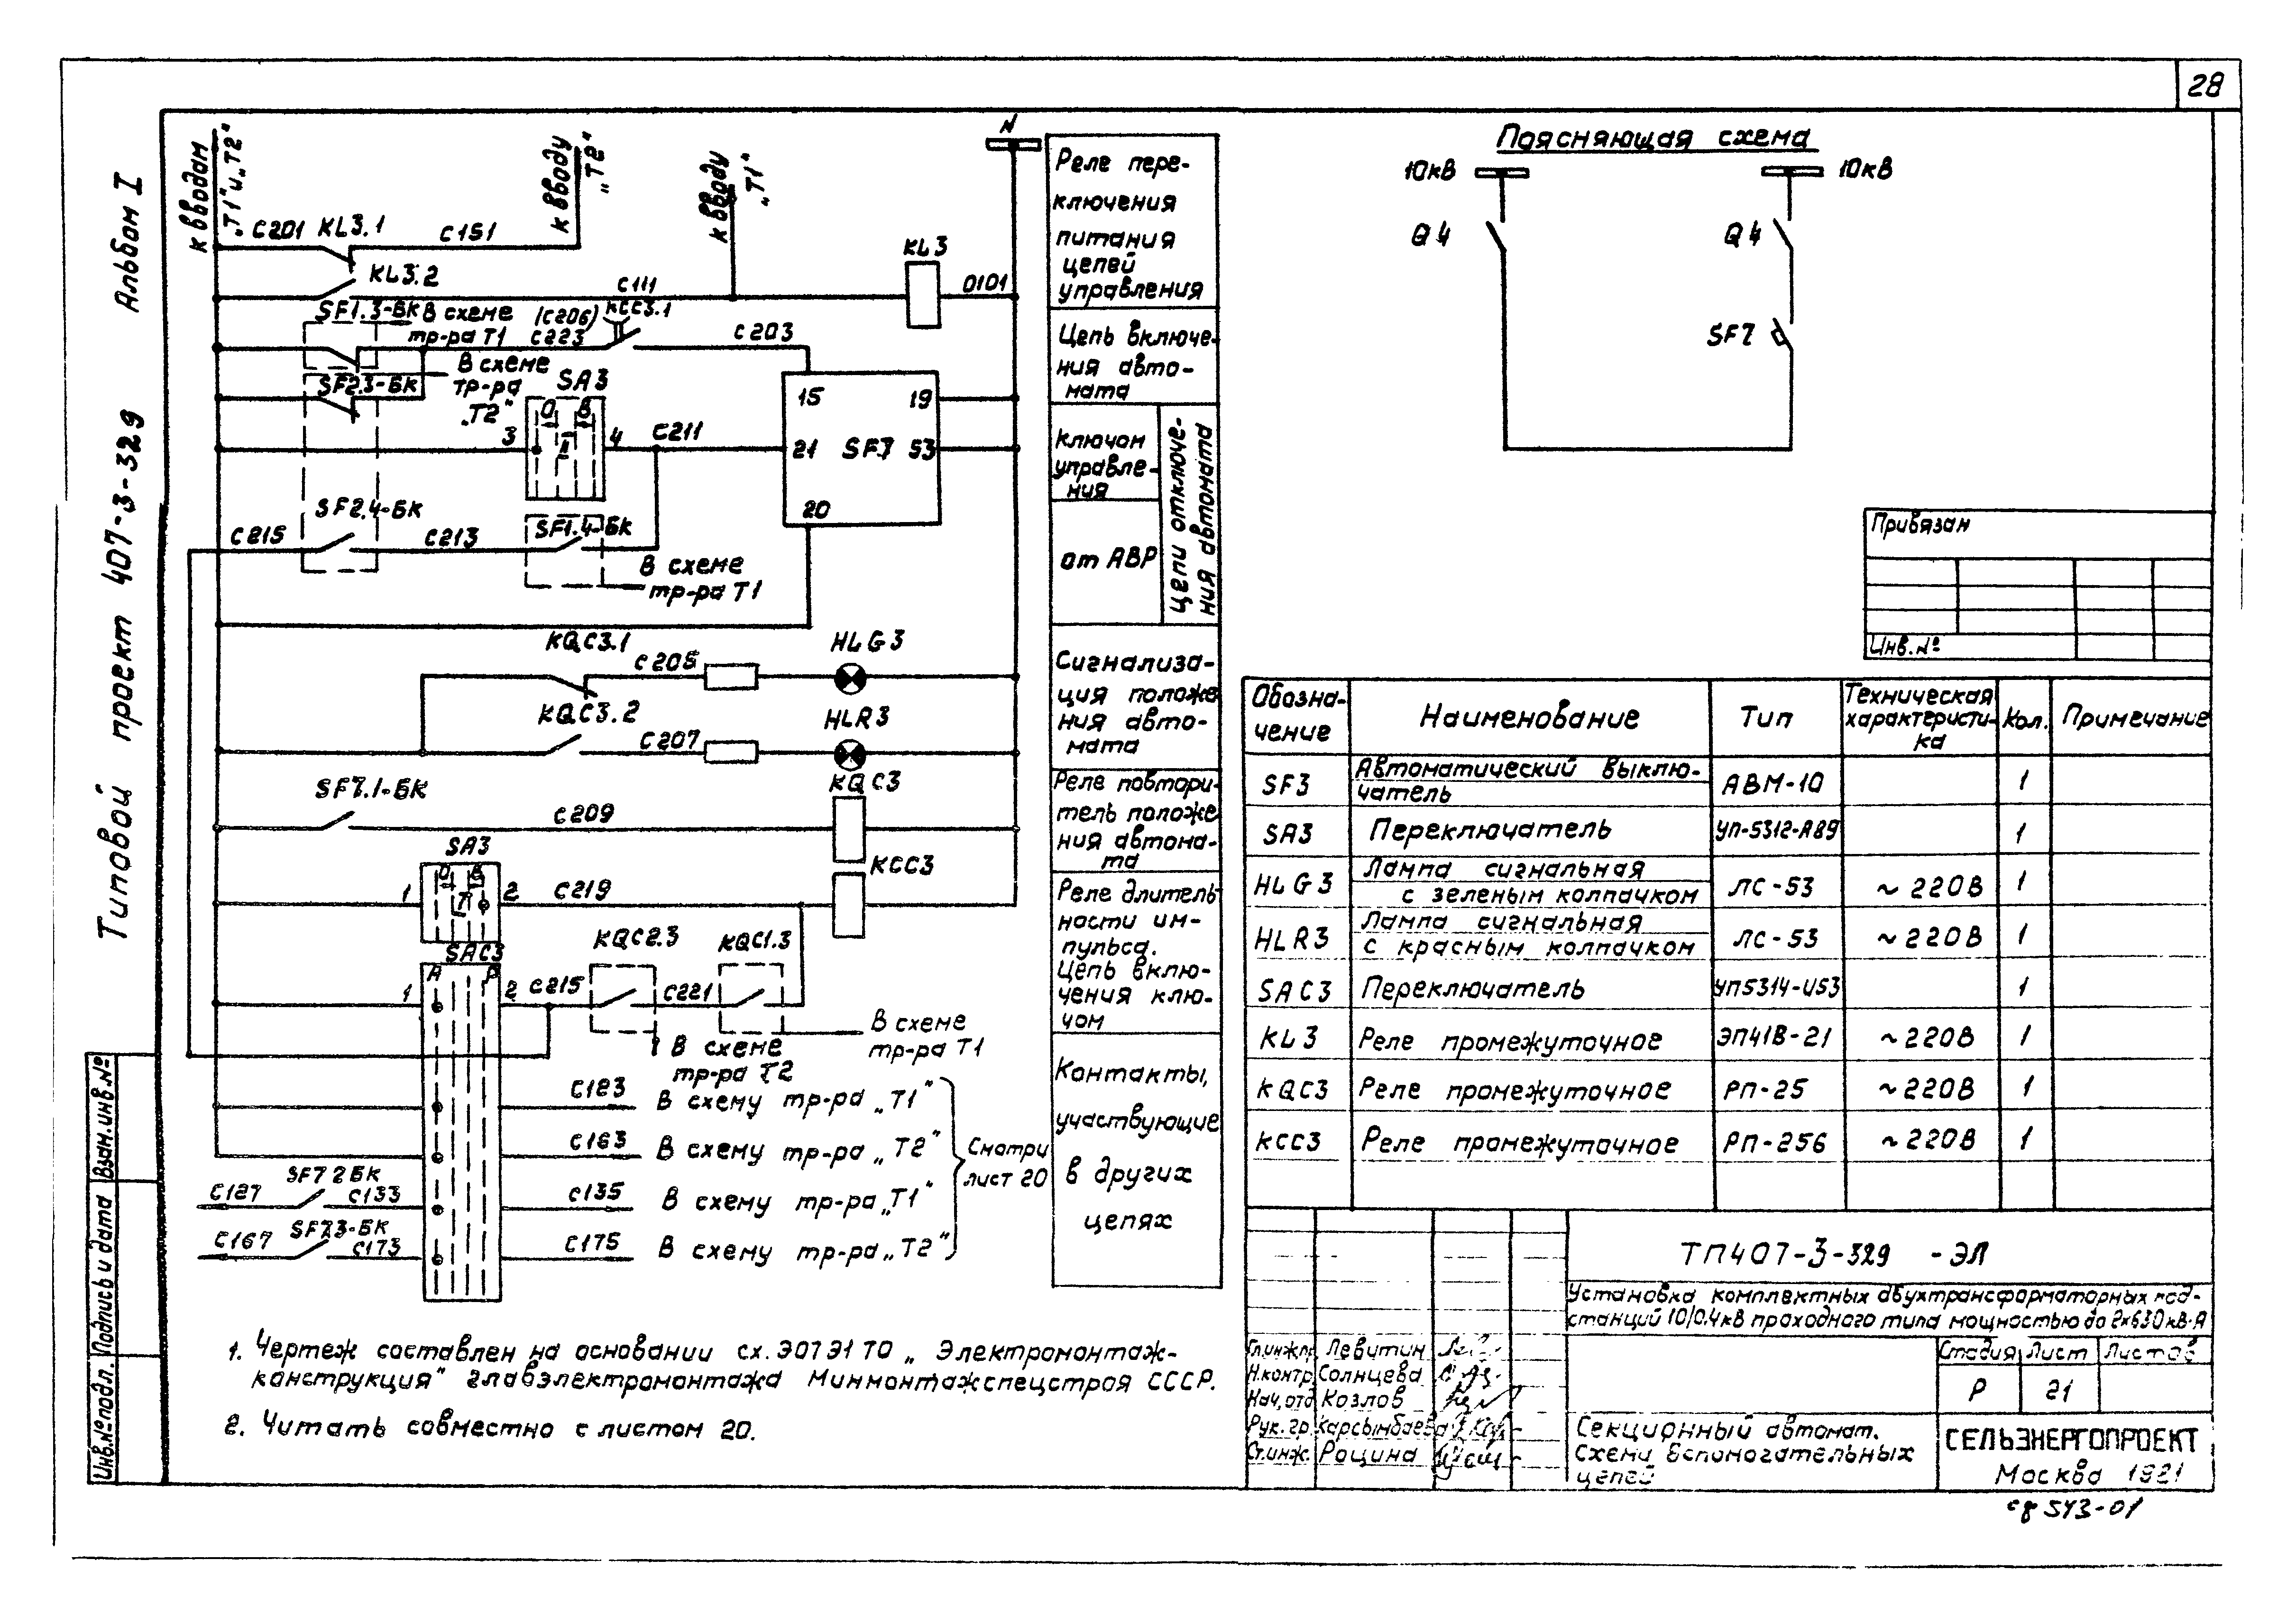 28
Альбом I
Типовой проект 407-3-329
к вводам
„Т1"и„Т2"
к вводу
„Т2"
к вводу
„Т1"
N
С201 KL3.1 С151
KL3.2
С111
KL3
0101
SF1.3-БК В схеме
тр-ра Т1
(С206)
С223
КСС3.1
С203
SF2.3-БК
В схеме
тр-ра
„Т2"
SA3
О В
3 4
С211
15 19
21 SF7 53
20
SF2.4-БК
С215 С213
SF1.4-БК
В схеме
тр-ра Т1
KQC3.1
С205
HLG3
KQC3.2
С207
HLR3
SF7.1-БК
С209
KQC3
SA3
О В
1 2
С219
КСС3
SAC3
А Р
1 2
С215
KQC2.3
С221
KQC1.3
В схеме
тр-ра Т2
В схеме
тр-ра Т1
С123 В схему тр-ра „Т1"
С163 В схему тр-ра „Т2"
С127 SF7 2БК С133 С135 В схему тр-ра „Т1"
С167 SF7.3-БК С173 С175 В схему тр-ра „Т2"
Смотри
лист 20
Реле пере-
ключения
питания
цепей
управления
Цепь включе-
ния авто-
мата
Ключом
управле-
ния
от АВР
Цепи отключе-
ния автомата
Сигнализа-
ция положе
ния авто-
мата
Реле повтори-
тель положе
ния автома-
та
Реле длитель
ности им-
пульса.
Цепь вклю-
чения клю-
чом
Контакты,
участвующие
в других
цепях
1. Чертеж составлен на основании сх. ЭО7Э1 ТО „ Электромонтаж-
конструкция" главэлектромонтажа Минмонтажспецстроя СССР.
2. Читать совместно с листом 20.
Поясняющая схема
10кВ 10кВ
Q4 Q4
SF7
Привязан
Инв.№
Обозна-
чение
Наименование
Тип
Техническая
характеристи-
ка
Кол.
Примечание
SF3 Автоматический выклю-
чатель АВМ-10 1
SA3 Переключатель УП-5312-А89 1
HLG3 Лампа сигнальная
с зеленым колпачком ЛС-53 ~220В 1
HLR3 Лампа сигнальная
с красным колпачком ЛС-53 ~220В 1
SAC3 Переключатель УП5314-И53 1
KL3 Реле промежуточное ЭП41В-21 ~220В 1
KQC3 Реле промежуточное РП-25 ~220В 1
КСС3 Реле промежуточное РП-256 ~220В 1
ТП407-3-329 -ЭЛ
Установка комплектных двухтрансформаторных под-
станций 10/0.4кВ проходного типа мощностью до 2×630кВ·А
Гл.инж.пр. Левитин
Н.контр Солнцева
Нач.отд Козлов
Рук.гр. Карсымбаева
Ст.инж. Рощина
Стадия Лист Листов
Р 21
Секционный автомат.
Схемы вспомогательных
цепей
СЕЛЬЭНЕРГОПРОЕКТ
Москва 1981
сф 543-01
Взам.инв.№
Подпись и дата
Инв.№подл.